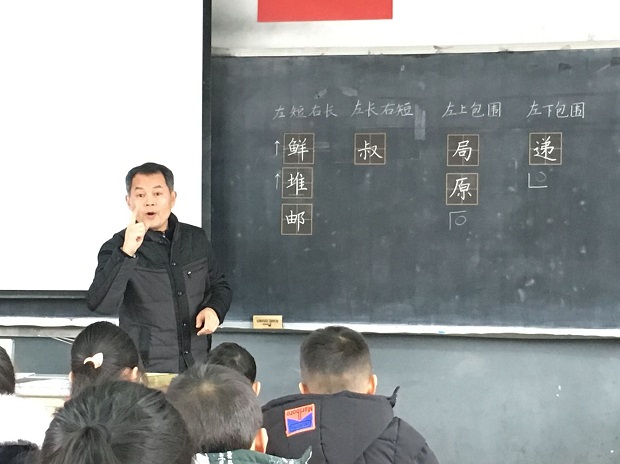 左短右长 左长右短 左上包围 左下包围
鲜 叔 局 递
堆 原
邮
Marlboro